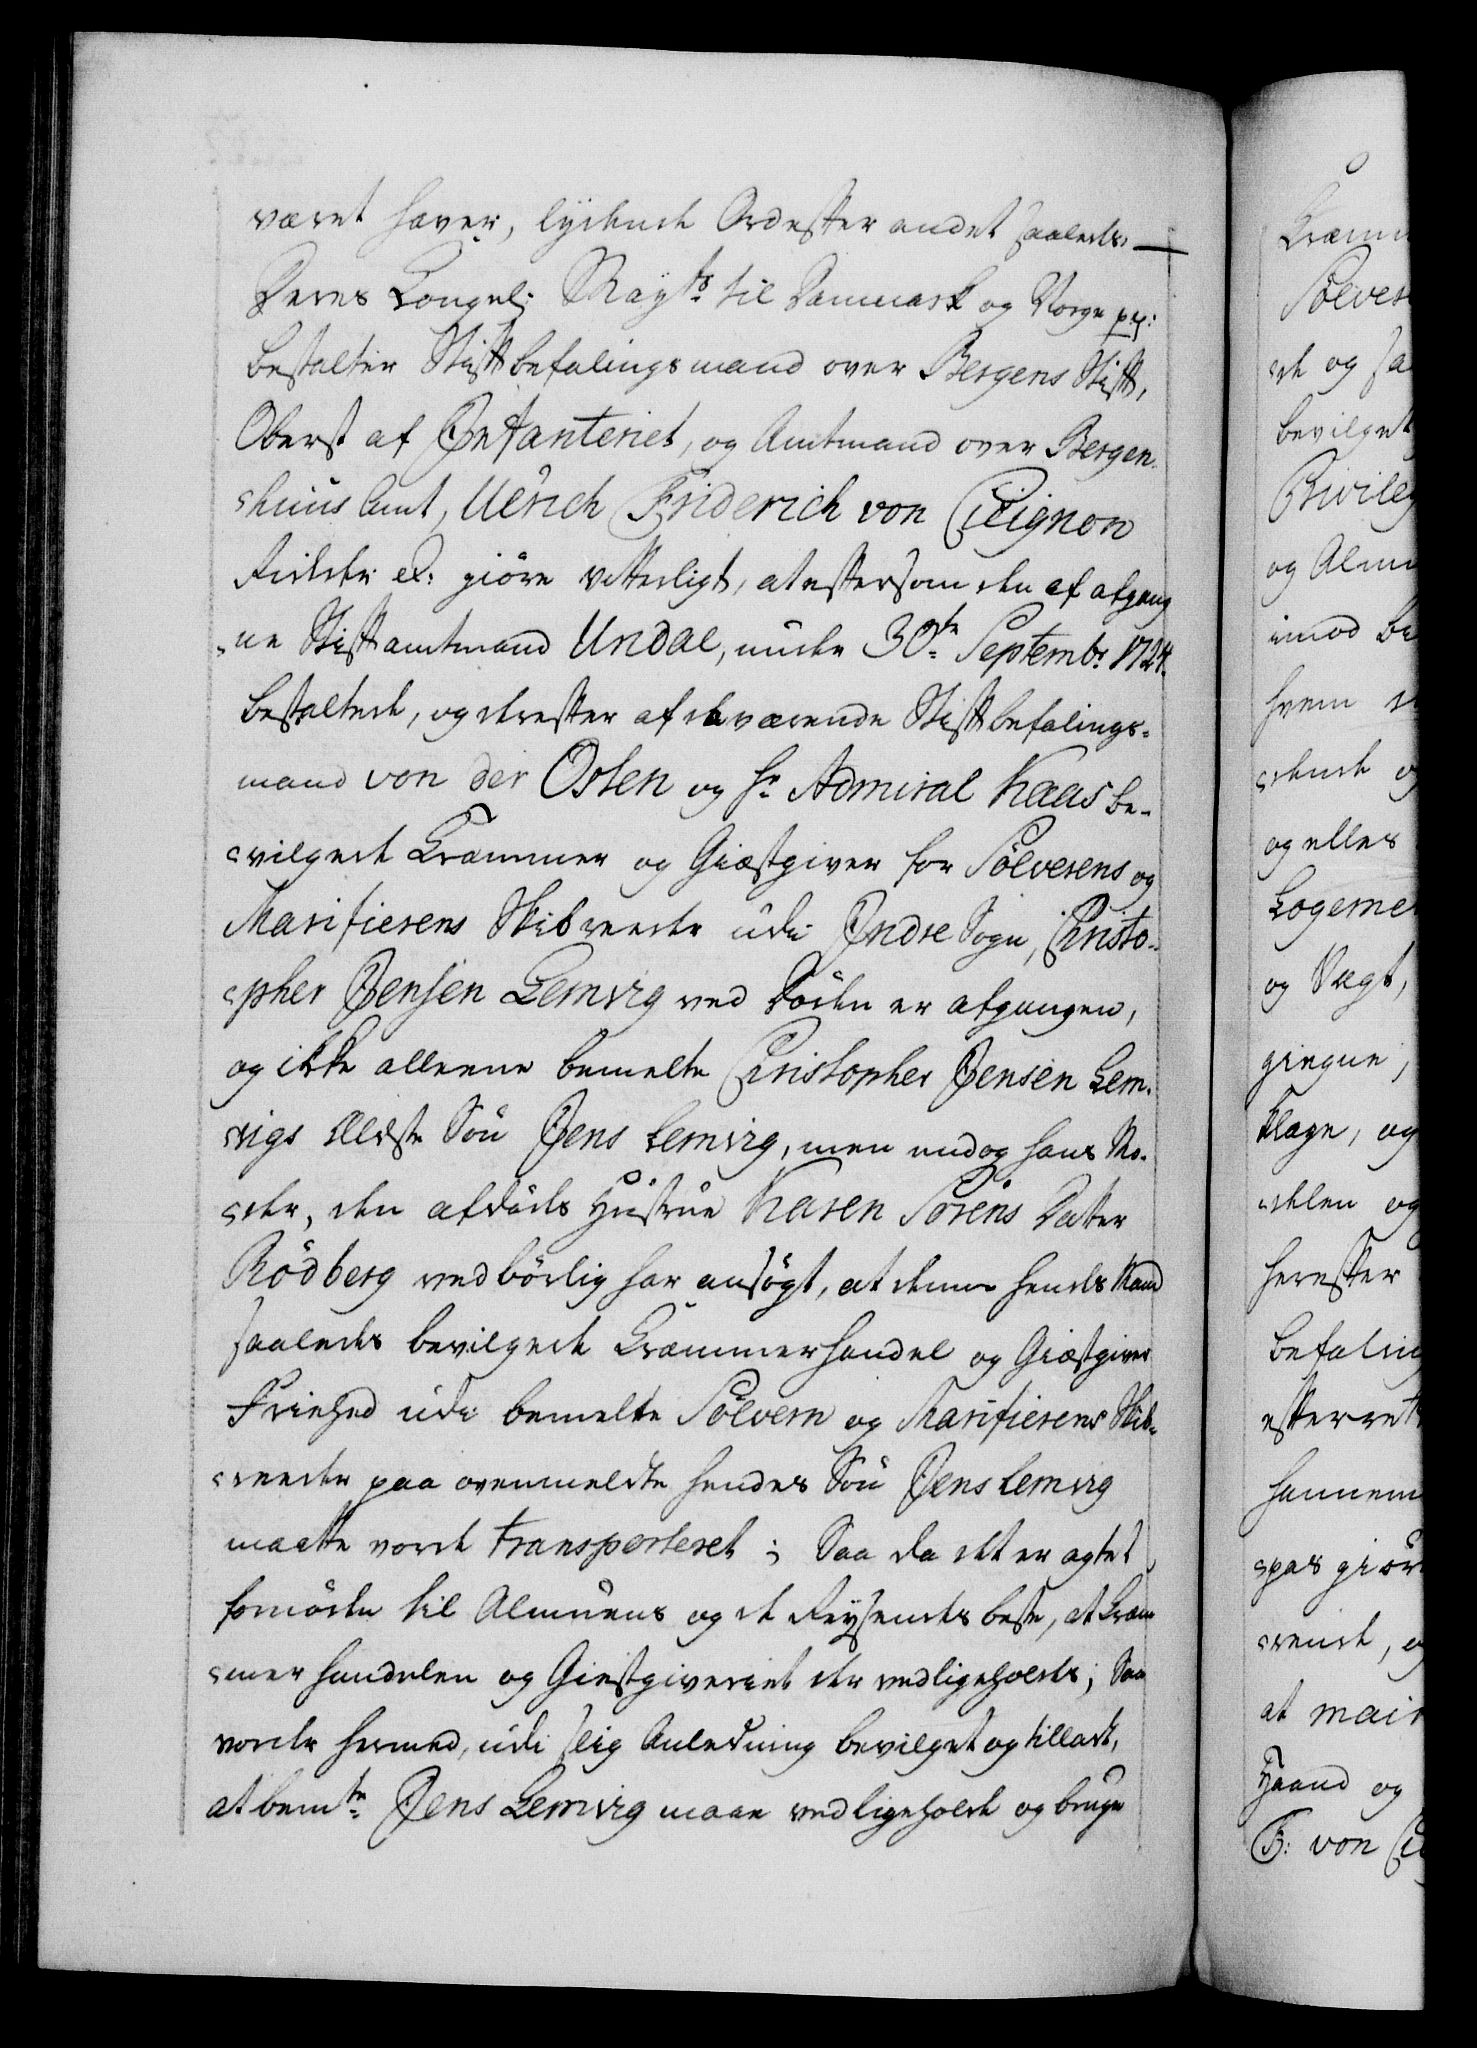 været haver, lydende Ord efter andet saaledes. —
Deres Kongel: Mayts til Danmark og Norge pp:
bestalter Stiftbefalingsmand over Bergens Stift,
Oberst af Infanteriet, og Amtmand over Bergen-
huus Amt, Ulrich Friderich von Cicignon
Ridder &: giöre vitterligt, at eftersom den af afgang
ne Stiftamtmand Undal, under 30te Septembr 1724.
bestaltede, og derefter af daværende Stiftbefalings-
mand von der Osten og Hr Admiral Kaas be-
vilgede Kræmmer og Giæstgiver for Sölverens og
Marifierens Skibreede udi Indre Sogn, Christo-
pher Jensen Lemvig ved Döden er afgangen,
og ikke alleene bemelte Christopher Jensen Lem-
vigs ældste Sön Jens Lemvig, men endog hans Mo-
der, den afdöds Hustrue Karen Sörens Datter
Rödberg ved börlig har ansögt, at denne hendes Mand
saaledes bevilgede Kræmmerhandel og Giæstgiver
Friehed udi bemelte Sölvern og Marifierens Skib-
reede paa ovenmeldte hendes Sön Jens Lemvig
maatte vorde transporteret; Saa da det er agtet
fornöden til Almuens og de Reysendes beste, at Kræm
mer handelen og Giestgiveriet der vedligeholdes; Saa
vorder hermed, udi slig Anledning bevilget og tilladt,
at bemte Jens Lemvig maae vedligeholde og bruge